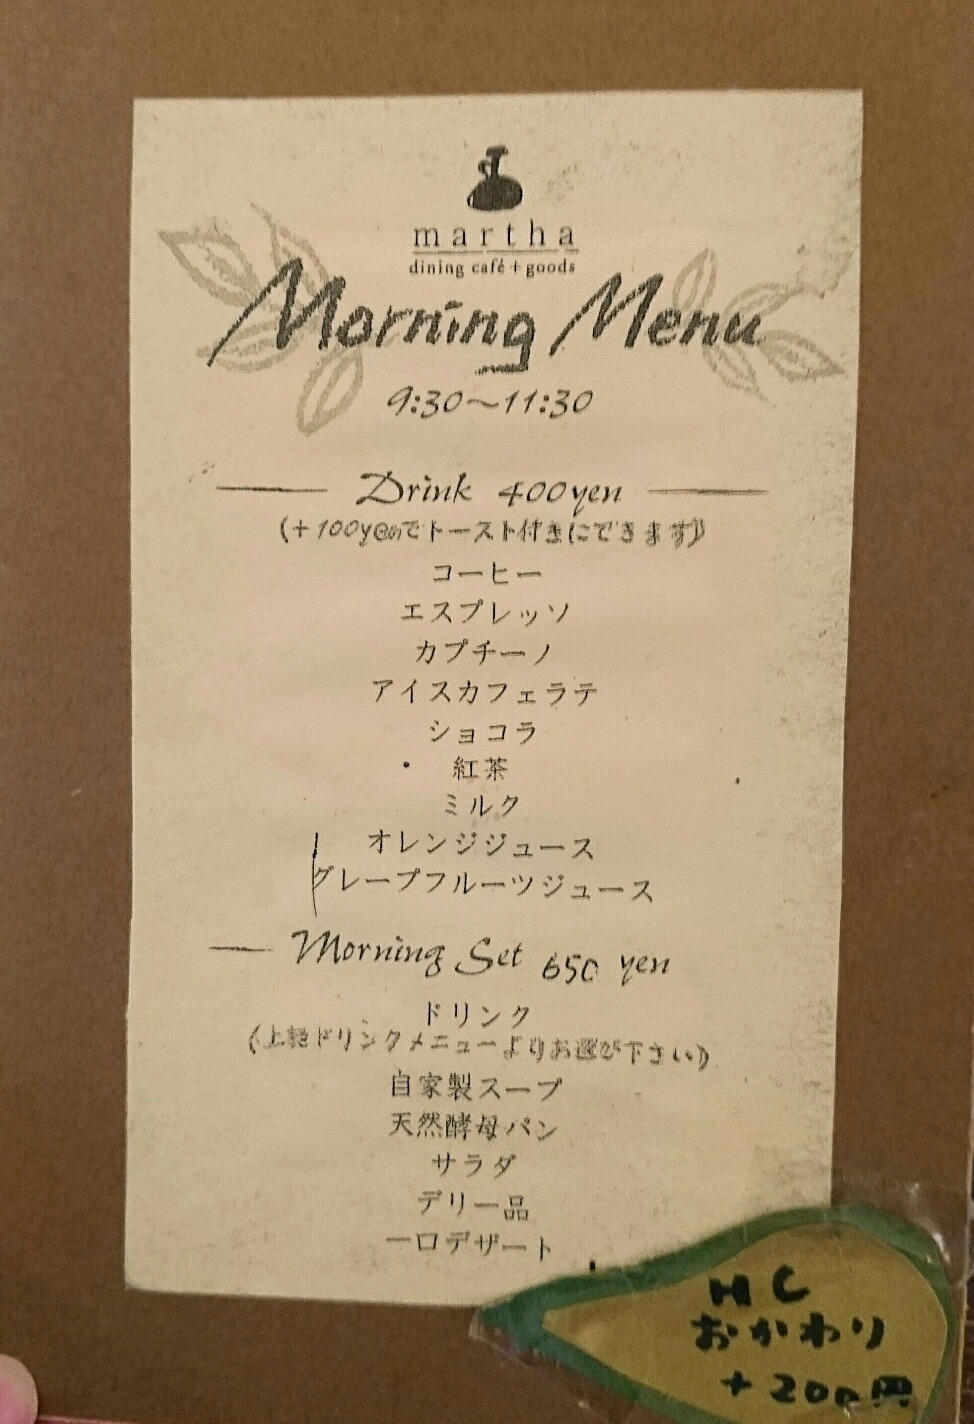 martha
dining café + goods
Morning Menu
9:30～11:30
Drink 400yen
(+100yenでトースト付きにできます)
コーヒー
エスプレッソ
カプチーノ
アイスカフェラテ
ショコラ
紅茶
ミルク
オレンジジュース
グレープフルーツジュース
Morning Set 650 yen
ドリンク
(上記ドリンクメニューよりお選び下さい)
自家製スープ
天然酵母パン
サラダ
デリ一品
一口デザート
HC
おかわり
+200円